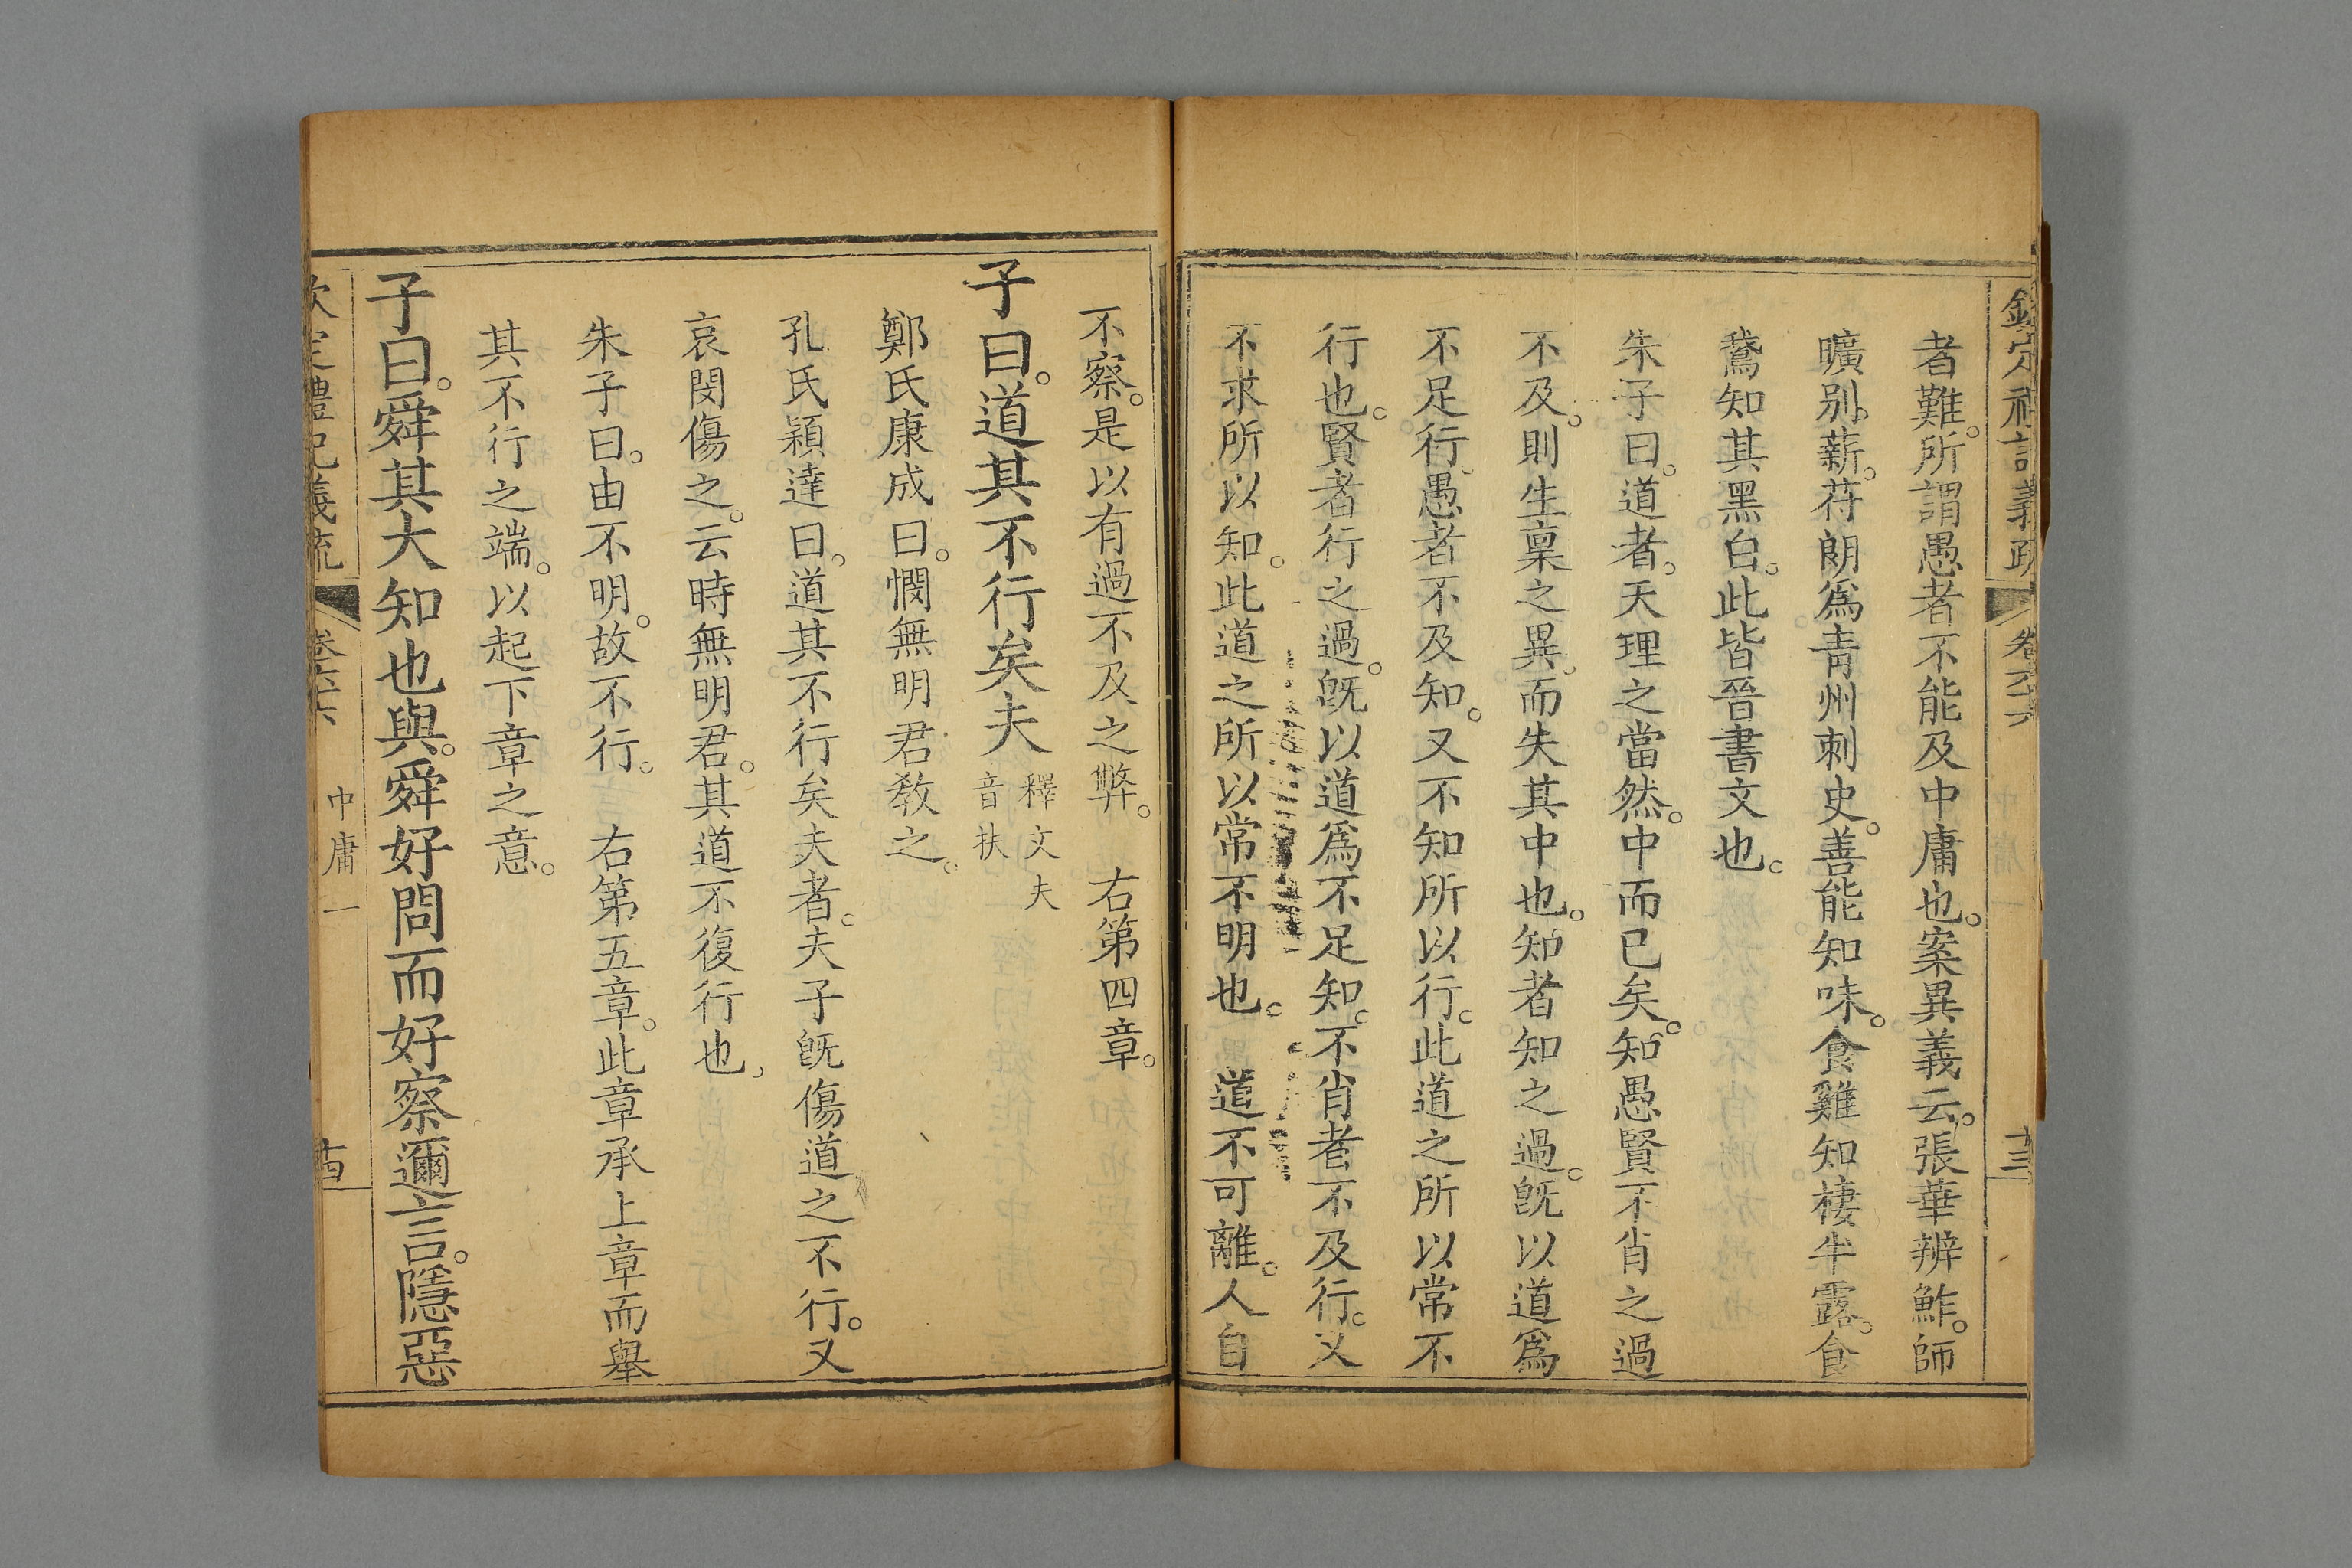 欽定禮記義疏 卷六十六 中庸一 十三
者難。所謂愚者不能及中庸也。案異義云。張華辨鮓。師
曠別薪。苻朗爲青州刺史。善能知味。食雞知棲半露。食
鵞知其黑白。此皆晉書文也。
朱子曰。道者。天理之當然。中而已矣。知愚賢不肖之過
不及。則生稟之異。而失其中也。知者知之過。旣以道爲
不足行。愚者不及知。又不知所以行。此道之所以常不
行也。賢者行之過。旣以道爲不足知。不肖者不及行。又
不求所以知。此道之所以常不明也。 道不可離。人自
不察。是以有過不及之弊。 右第四章。
子曰。道其不行矣夫 釋文夫音扶
鄭氏康成曰。憫無明君敎之。
孔氏穎達曰。道其不行矣夫者。夫子旣傷道之不行。又
哀閔傷之。云時無明君。其道不復行也。
朱子曰。由不明。故不行。 右第五章。此章承上章而舉
其不行之端。以起下章之意。
子曰。舜其大知也與。舜好問而好察邇言。隱惡
欽定禮記義疏 卷六十六 中庸一 十四